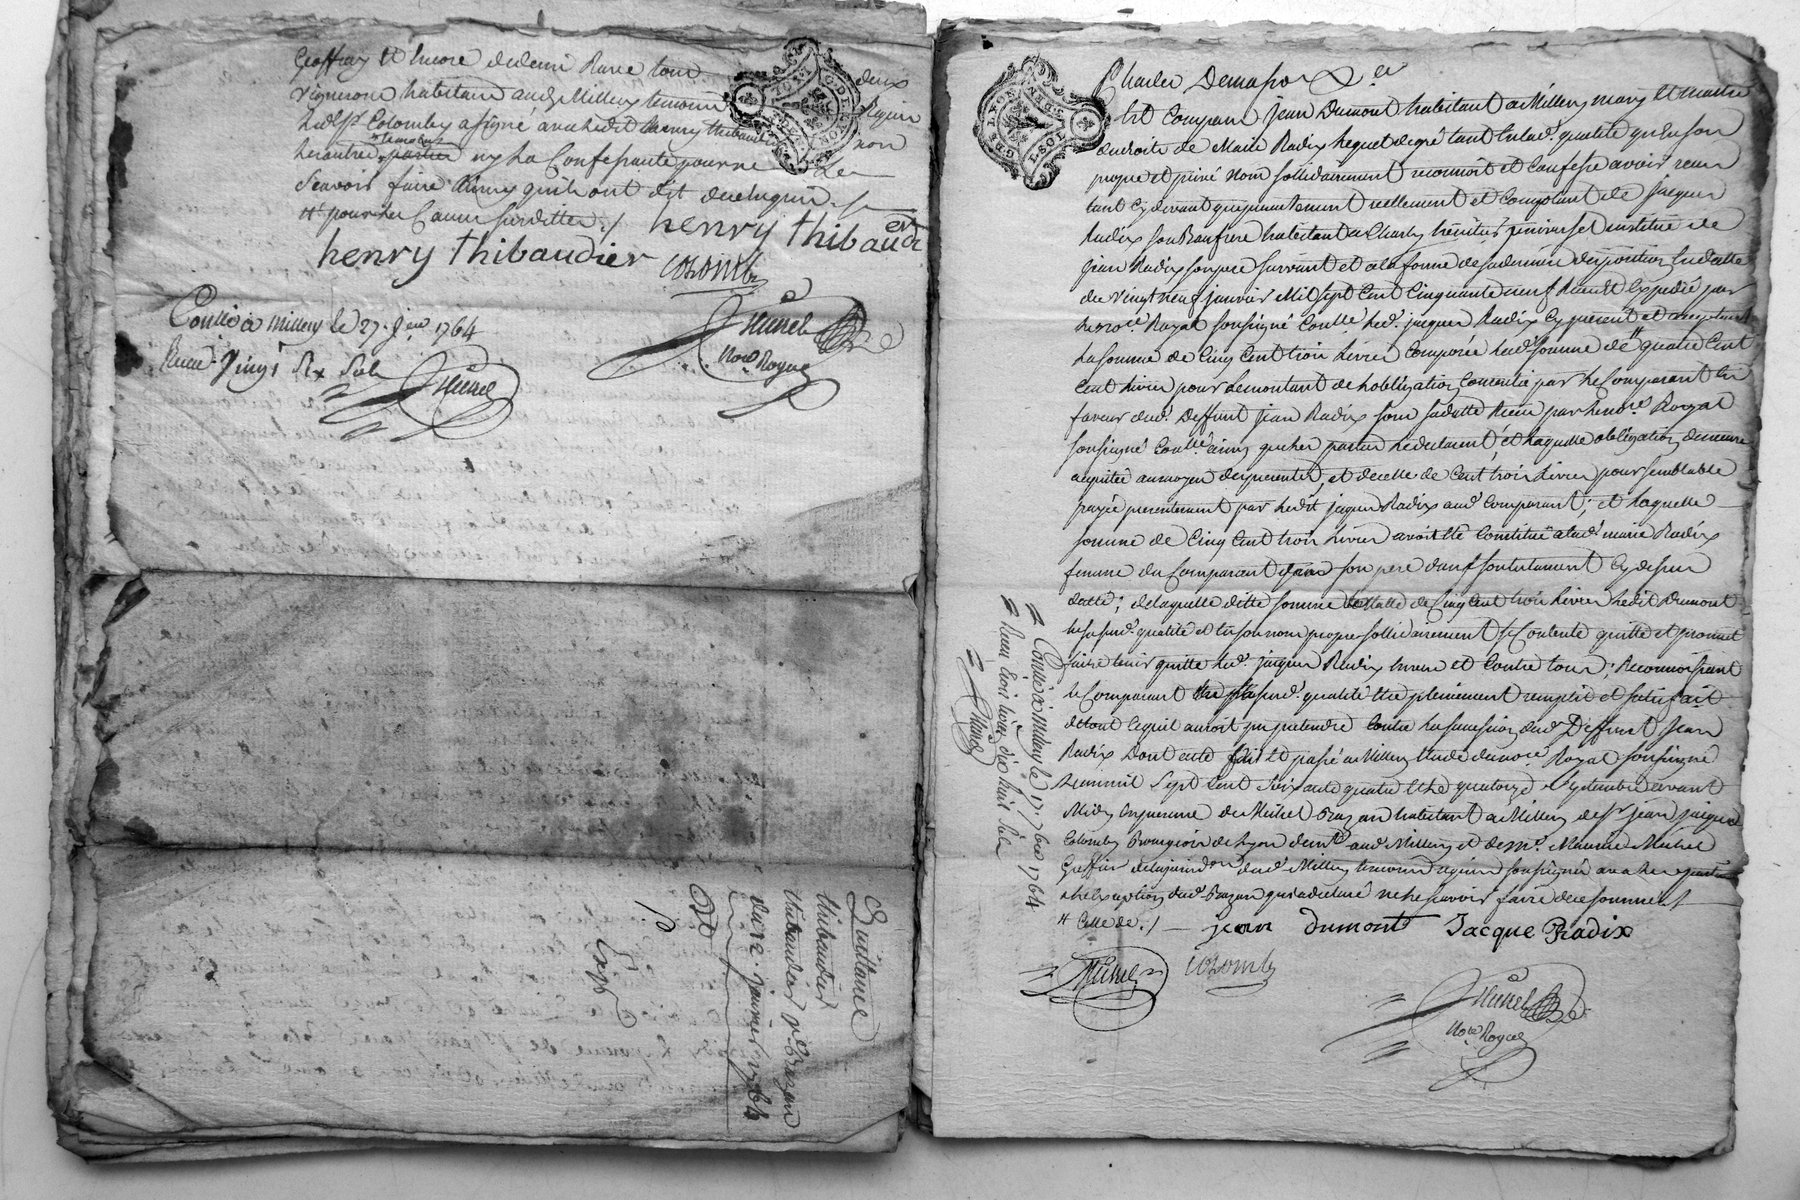 Geoffray et encore dedenis Rave tous deux
vignerons habitans aud. Millery temoins Requis
Led. Sr. Colomby a signé avec ledit henry thibaudier non
les autres ny la Confessante pour ne le
sçavoir faire ainsy quils ont dit de ce Enquis
henry thibaudier
henry thibaudier
Colomby
Controllé à Millery le 27. janv. 1764
Reçu Vingt six sols
Not. Royal
Quittance
thibaudier
thibaudier
du 22. janvier 1764
Exp.
G. DE LYON
Est Comparu Jean Dumont habitant a Millery mary et maitre
des droits de Marie Radix lequel de gré tant en lad. qualité qu'en son
propre et privé Nom sollidairement reconnoit et Confesse avoir reçu
tant cy devant que presentement reellement et Comptant de jacques
Radix son Beaufrere habitant a Charly heritier universel institué de
jean Radix son pere suivant et a la forme de sa derniere disposition en datte
du vingt neuf janvier Mil sept Cent Cinquante neuf Reçue et Expediée par
le no.re Royal soussigné Controllé led. jacques Radix cy present et acceptant
la somme de Cinq Cent trois Livres Composée lad. somme de quatre Cent
Livres pour le montant de l'obligation Consentie par le Comparant En
faveur dud. Deffunt jean Radix sous sa datte Reçue par le no.re Royal
soussigné Controllé ainsy que les parties le declarent, et laquelle obligation demeure
aquittée au moyen des presentes, et de celle de Cent trois Livres pour semblable
payée presentement par ledit jacques Radix aud. Comparant; et laquelle
somme de Cinq Cent trois Livres avoit été Constitué a lad. marie Radix
femme du Comparant par son pere dans son testament Cy dessus
datté; de laquelle ditte somme totalle de Cinq Cent trois Livres ledit Dumont
en sad. qualité et en son nom propre sollidairement se Contente quitte et promet
faire tenir quitte led. jacques Radix envers et Contre tous; Reconnoissant
le Comparant en sad. qualité être pleinement remplie et satisfait
de tout ce qu'il auroit pu pretendre Contre la succession dud. Deffunt jean
Radix Dont acte fait et passé a Millery Etude du no.re Royal soussigné
L'an mil Sept Cent soixante quatre et le quatorze septembre avant
Midy en presence de Michel Brazan habitant a Millery de Sr. jean jacques
Colomby Bourgeois de Lyon dem.t aud. Millery et de M.e Maurice Michel
Greffier de la jurisd.on dud. Millery temoins requis soussignés avec les parties
a l'exception dud. Brazan qui a declaré ne le sçavoir faire de ce sommé
jean Dumont Jacque Radix
Colomby
Not.re Royal
Controllé à Millery le 17. 7bre 1764
Reçu trois livres dix huit sols